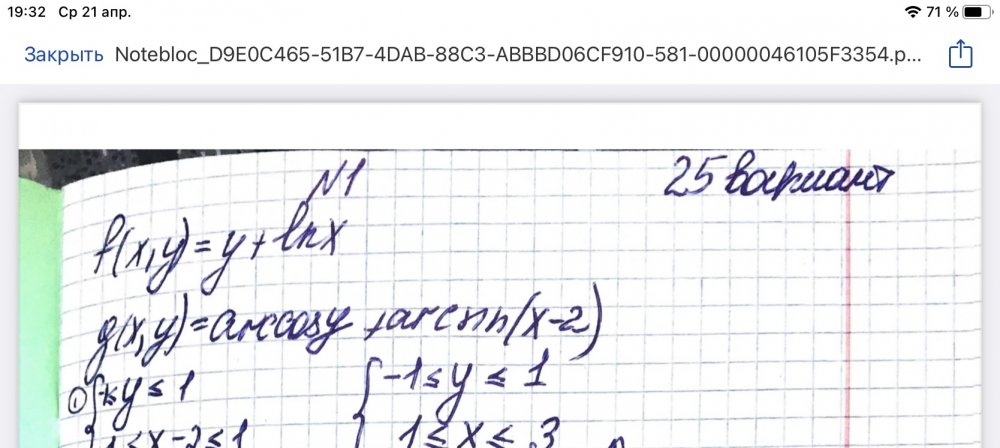 19:32 Ср 21 апр. 71 %
Закрыть Notebloc_D9E0C465-51B7-4DAB-88C3-ABBBD06CF910-581-00000046105F3354.p...
N1 25 вариант
f(x,y)=y+lnx
g(x,y)=arccosy+arcsin(x-2)
① { -1≤y≤1 { -1≤y≤1
-1≤x-2≤1 1≤x≤3